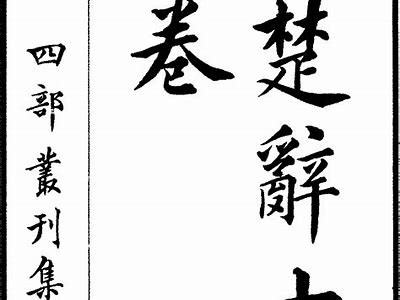 楚辭
卷
四部叢刊集